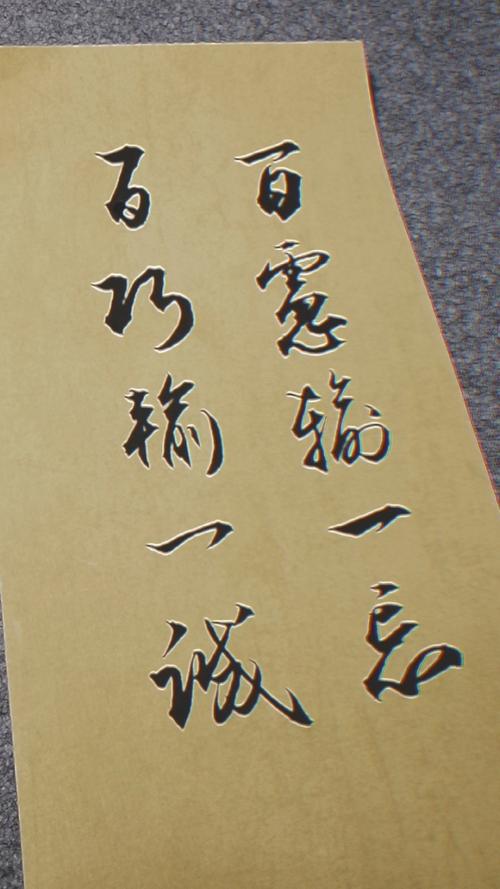 百慮輸一忘
百巧輸一誠